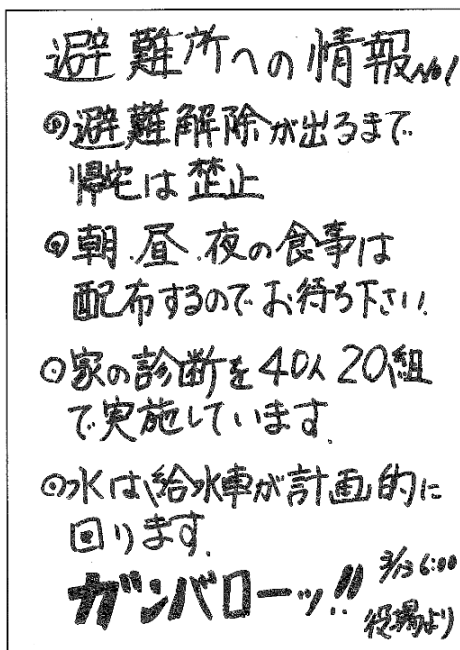 避難所への情報No1
◎避難解除が出るまで
帰宅は禁止
◎朝.昼.夜の食事は
配布するのでお待ち下さい.
◎家の診断を40人20組
で実施しています.
◎水は、給水車が計画的に
回ります.
ガンバローッ!!
3/13 6:00
役場より